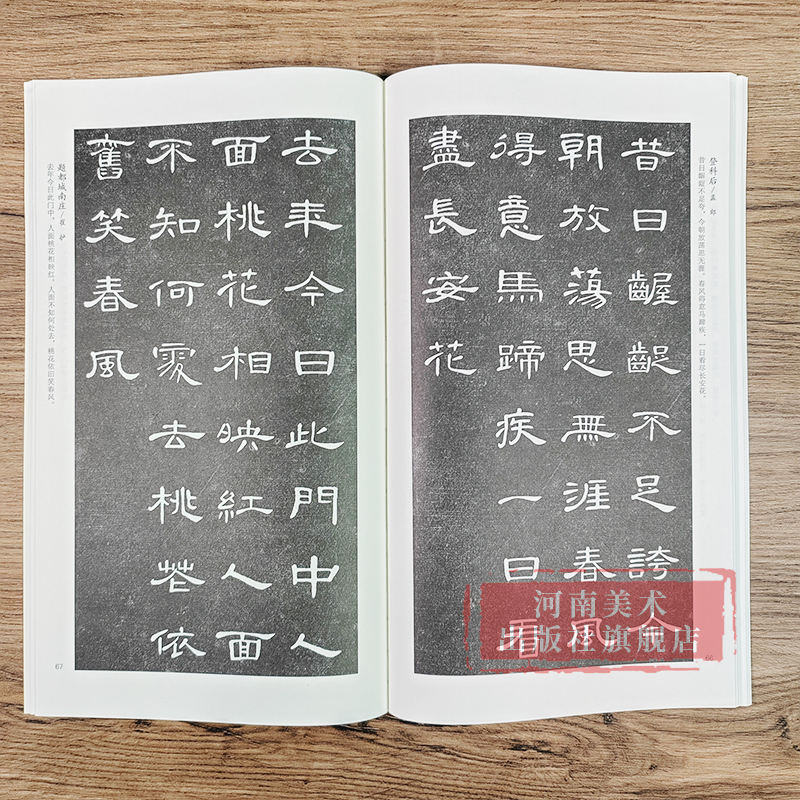 登科后/孟郊
昔日龌龊不足夸，今朝放荡思无涯。春风得意马蹄疾，一日看尽长安花。
昔日齷齪不足誇今
朝放蕩思無涯春風
得意馬蹄疾一日看
盡長安花
66
去年今日此門中人
面桃花相映紅人面
不知何處去桃花依
舊笑春風
题都城南庄/崔护
去年今日此门中，人面桃花相映红。人面不知何处去，桃花依旧笑春风。
67
河南美术
出版社旗舰店